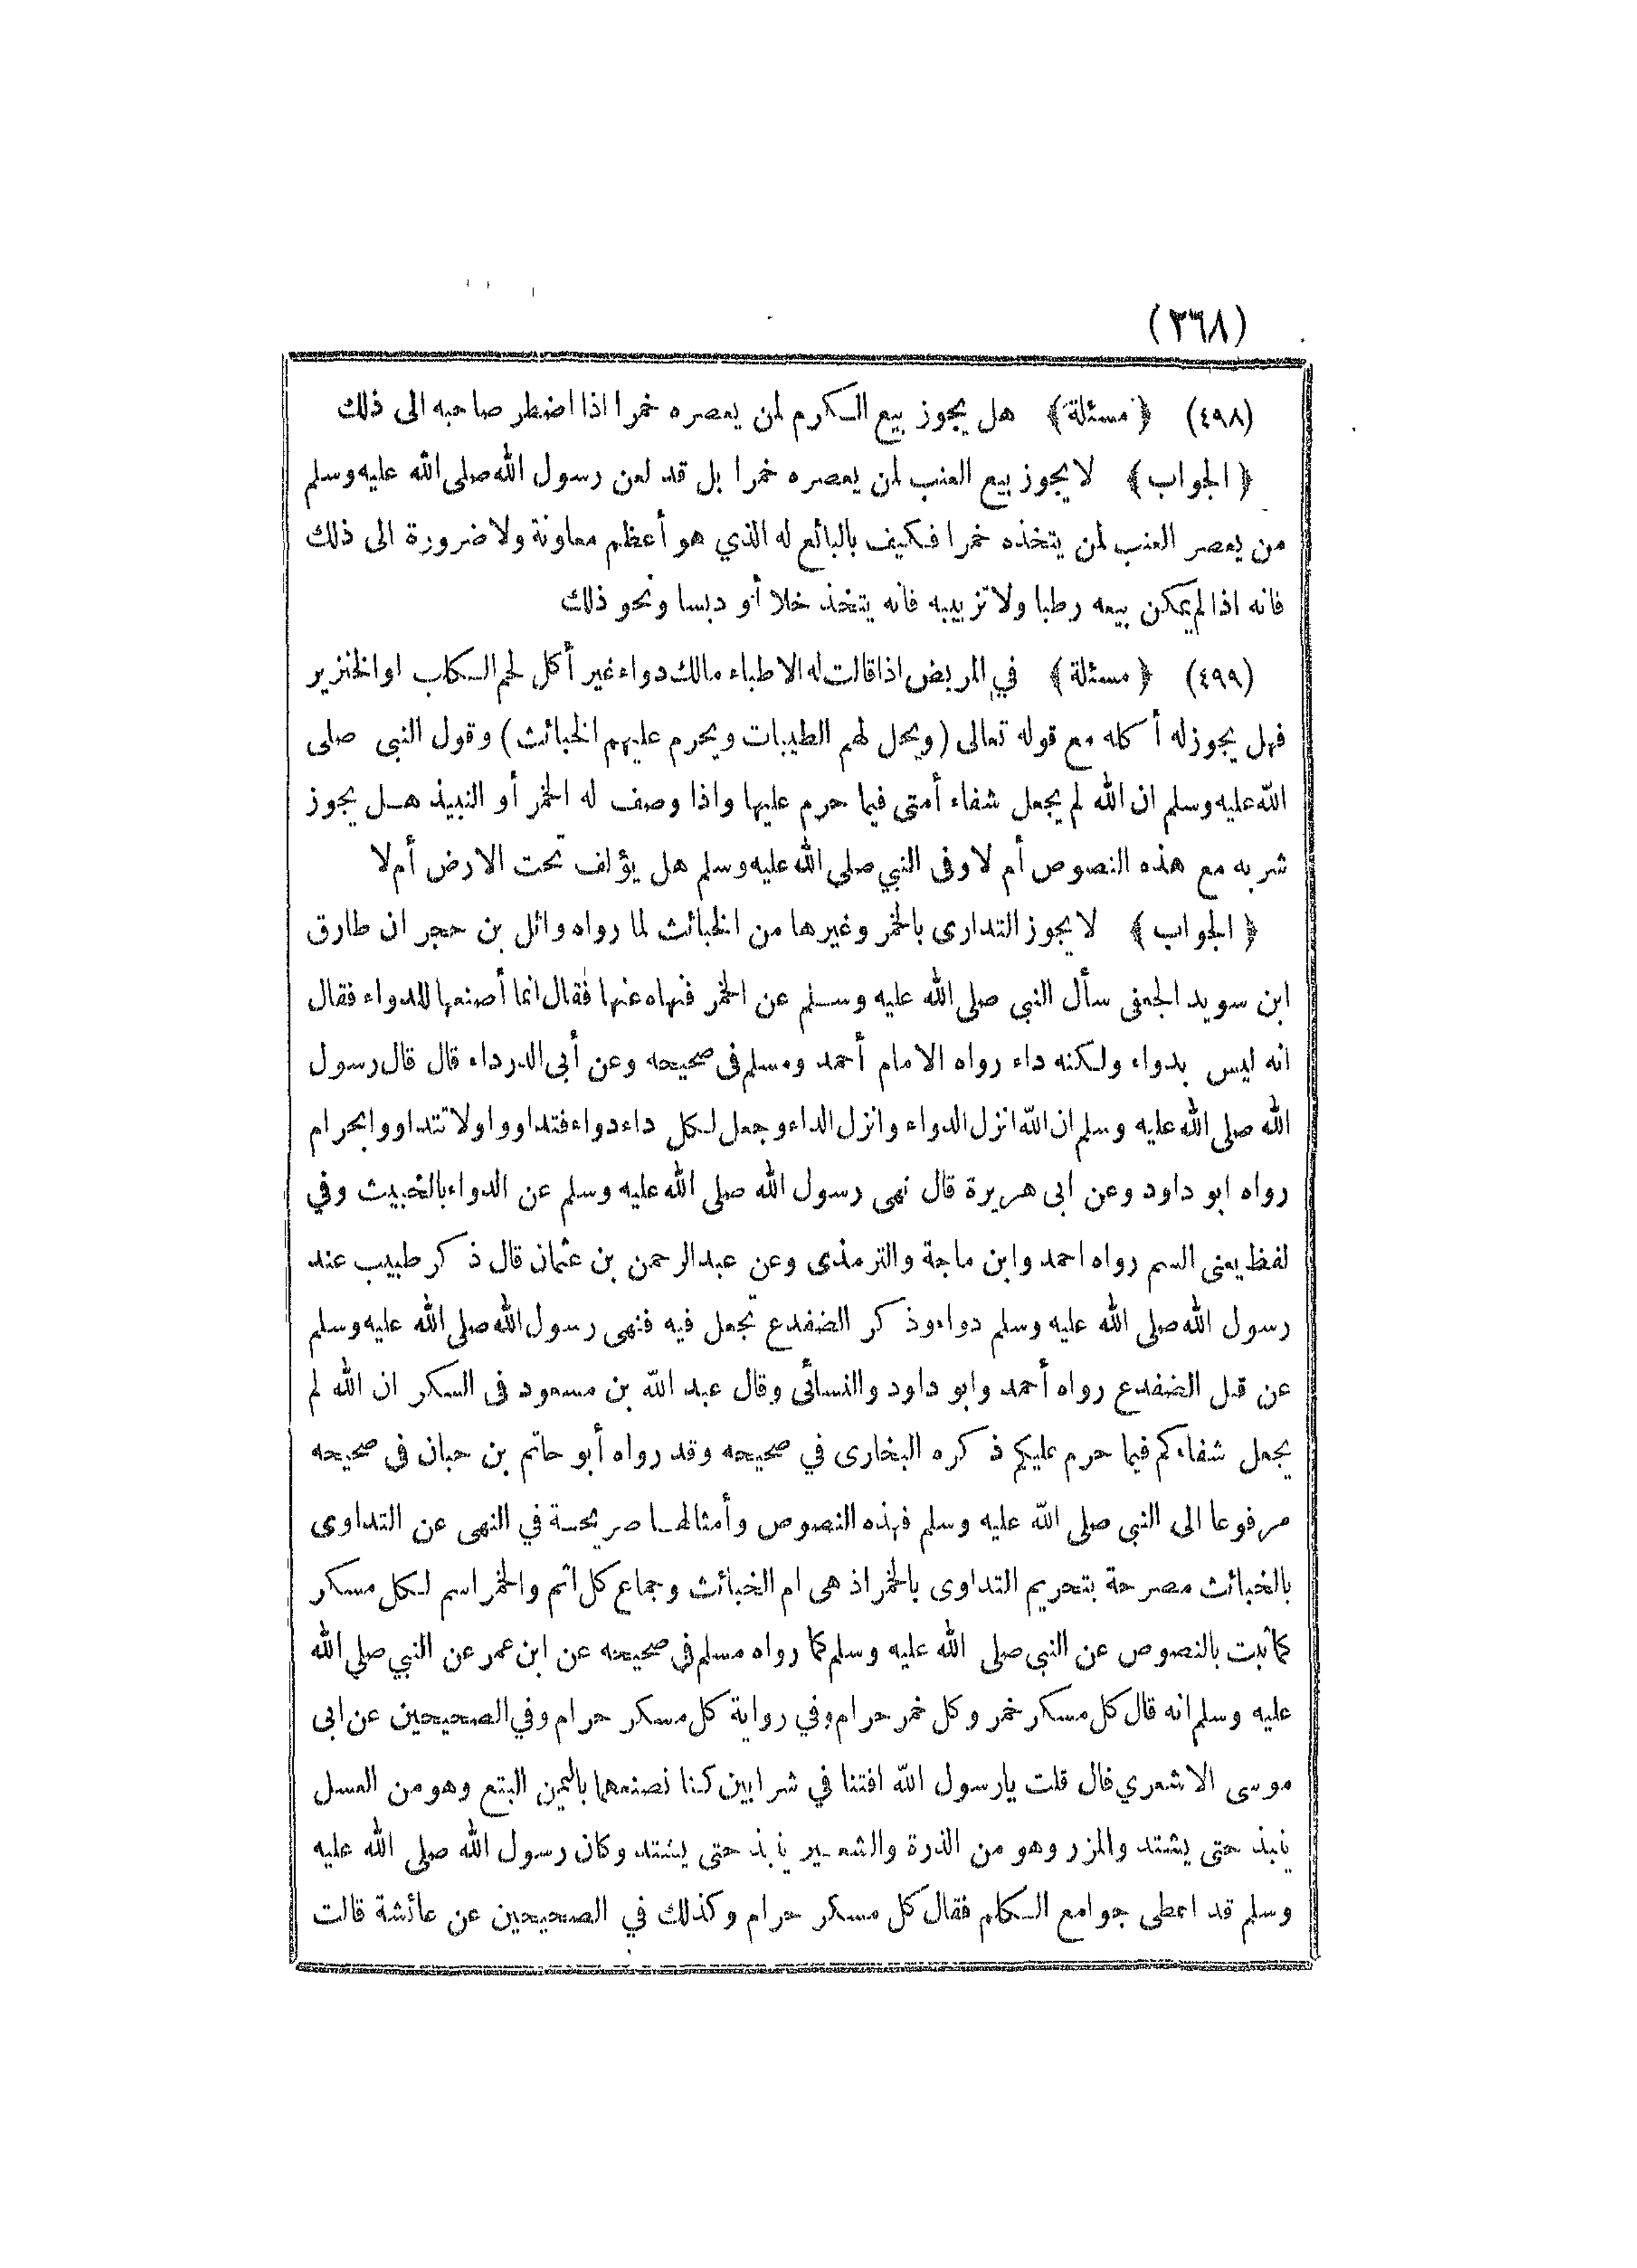 (٣٦٨)
(٤٩٨) ﴿ مسئلة ﴾ هل يجوز بيع الكرم لمن يعصره خمرا اذا اضطر صاحبه الى ذلك
﴿ الجواب ﴾ لا يجوز بيع العنب لمن يعصره خمرا بل قد لعن رسول الله صلى الله عليه وسلم
من يعصر العنب لمن يتخذه خمرا فكيف بالبائع له الذي هو أعظم معاونة ولا ضرورة الى ذلك
فانه اذا لم يمكن بيعه رطبا ولا تزبيبه فانه يتخذ خلا أو دبسا ونحو ذلك
(٤٩٩) ﴿ مسئلة ﴾ في المريض اذا قالت له الاطباء مالك دواء غير أكل لحم الكلب او الخنزير
فهل يجوز له أكله مع قوله تعالى (ويحل لهم الطيبات ويحرم عليهم الخبائث) وقول النبي صلى
الله عليه وسلم ان الله لم يجعل شفاء أمتى فيما حرم عليها واذا وصف له الخمر أو النبيذ هل يجوز
شربه مع هذه النصوص أم لا وفى النبي صلى الله عليه وسلم هل يؤلف تحت الارض أم لا
﴿ الجواب ﴾ لا يجوز التدارى بالخمر وغيرها من الخبائث لما رواه وائل بن حجر ان طارق
ابن سويد الجعفى سأل النبي صلى الله عليه وسلم عن الخمر فنهاه عنها فقال انما أصنعها للدواء فقال
انه ليس بدواء ولكنه داء رواه الامام أحمد ومسلم فى صحيحه وعن أبى الدرداء قال قال رسول
الله صلى الله عليه وسلم ان الله انزل الدواء وانزل الداء وجعل لكل داء دواء فتداووا ولا تتداووا بحرام
رواه ابو داود وعن ابى هريرة قال نهى رسول الله صلى الله عليه وسلم عن الدواء بالخبيث وفي
لفظ يعنى السم رواه احمد وابن ماجة والترمذى وعن عبد الرحمن بن عثمان قال ذكر طبيب عند
رسول الله صلى الله عليه وسلم دواء وذكر الضفدع تجعل فيه فنهى رسول الله صلى الله عليه وسلم
عن قتل الضفدع رواه أحمد وابو داود والنسائى وقال عبد الله بن مسعود فى السكر ان الله لم
يجعل شفاءكم فيما حرم عليكم ذكره البخارى في صحيحه وقد رواه أبو حاتم بن حبان فى صحيحه
مرفوعا الى النبي صلى الله عليه وسلم فهذه النصوص وأمثالها صريحة في النهى عن التداوى
بالخبائث مصرحة بتحريم التداوى بالخمر اذ هى ام الخبائث وجماع كل اثم والخمر اسم لكل مسكر
كما ثبت بالنصوص عن النبى صلى الله عليه وسلم كما رواه مسلم في صحيحه عن ابن عمر عن النبي صلى الله
عليه وسلم انه قال كل مسكر خمر وكل خمر حرام وفي رواية كل مسكر حرام وفي الصحيحين عن ابى
موسى الاشعري قال قلت يا رسول الله افتنا في شرابين كنا نصنعهما باليمن البتع وهو من العسل
ينبذ حتى يشتد والمزر وهو من الذرة والشعير ينبذ حتى يشتد وكان رسول الله صلى الله عليه
وسلم قد اعطى جوامع الكلم فقال كل مسكر حرام وكذلك في الصحيحين عن عائشة قالت